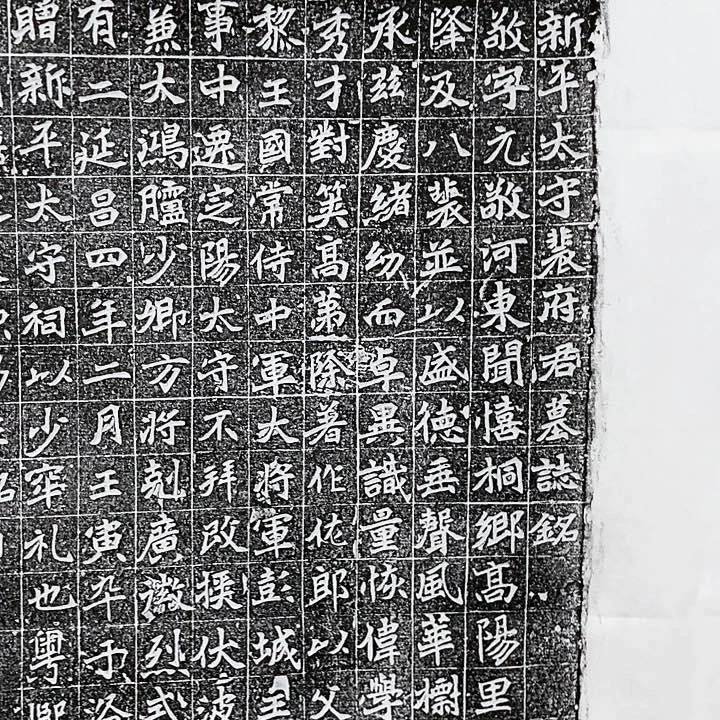 新平太守裴府君墓誌銘
敬字元敬河東聞憘桐鄉高陽里
隆及八裴並以盛德垂聲風華櫛
承茲慶緒幼而卓異識量恢偉學
秀才對筴高苐除著作佐郎以父
黎王國常侍中軍大將軍彭城王
事中還定陽太守不拜改援伏波
兼大鴻臚少卿方將剋廣徽烈式
有二延昌四年二月壬寅卒于洛
贈新平太守祠以少窂礼也粵熙